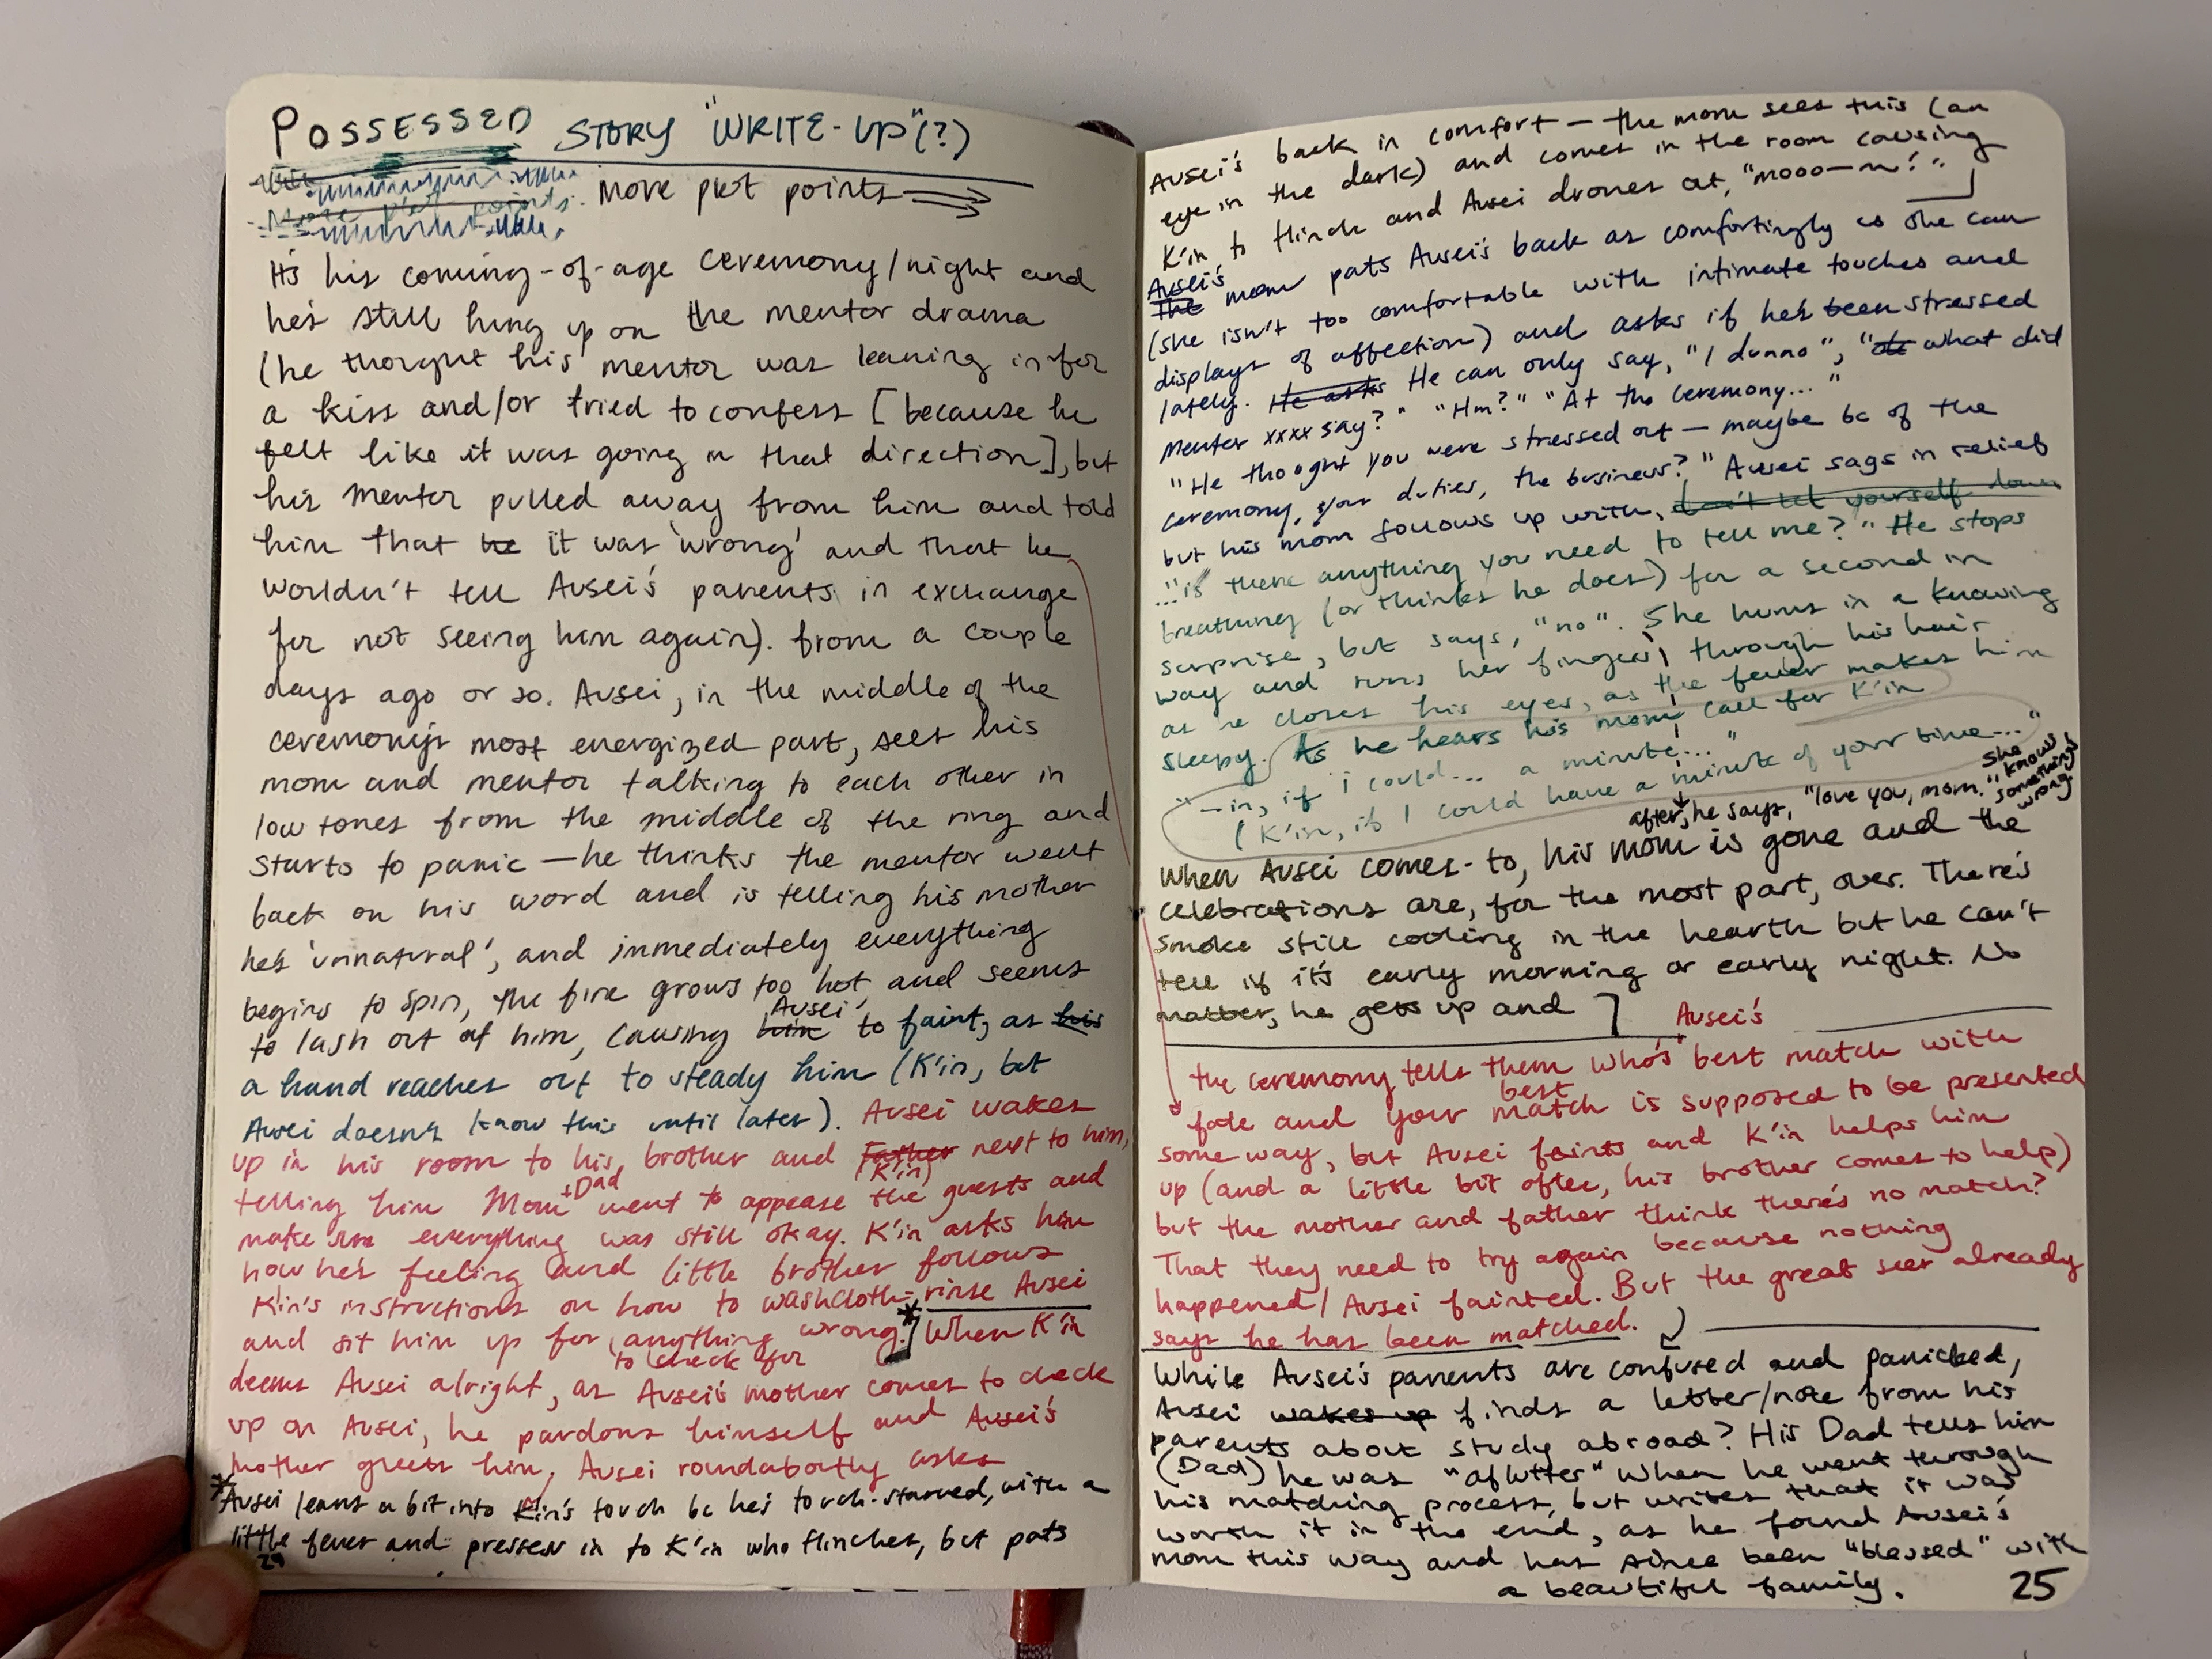 POSSESSED STORY "WRITE-UP"(?)
More plot points.
More plot points
It's his coming-of-age ceremony/night and
he's still hung up on the mentor drama
(he thought his mentor was leaning in for
a kiss and/or tried to confess [because he
felt like it was going in that direction], but
his mentor pulled away from him and told
him that he it was 'wrong' and that he
wouldn't tell Avsei's parents in exchange
for not seeing him again). from a couple
days ago or so. Avsei, in the middle of the
ceremony's most energized part, sees his
mom and mentor talking to each other in
low tones from the middle of the ring and
starts to panic — he thinks the mentor went
back on his word and is telling his mother
he's 'unnatural', and immediately everything
begins to spin, the fire grows too hot and seems
to lash out at him, causing him Avsei to faint, as his
a hand reaches out to steady him (K'in, but
Avsei doesn't know this until later). Avsei wakes
up in his room to his brother and Father (K'in) next to him,
telling him Mom + Dad went to appease the guests and
make sure everything was still okay. K'in asks him
how he's feeling and little brother follows
K'in's instructions on how to washcloth-rinse Avsei
and sit him up for anything wrong.*] When K'in
to check for
deems Avsei alright, as Avsei's mother comes to check
up on Avsei, he pardons himself and Avsei's
mother greets him, Avsei roundaboutly asks
*Avsei leans a bit into K'in's touch bc he's touch-starved, with a
little fever and presses in to K'in who flinches, but pats
Avsei's back in comfort — the mom sees this (an
eye in the dark) and comes in the room causing
K'in to flinch and Avsei drones out, "mooo—m!".
The Avsei's mom pats Avsei's back as comfortingly as she can
(she isn't too comfortable with intimate touches and
displays of affection) and asks if he's been stressed
lately. He asks He can only say, "I dunno", "what did
Mentor xxxx say?" "Hm?" "At the ceremony..."
"He thought you were stressed out — maybe bc of the
ceremony, your duties, the business?" Avsei sags in relief
but his mom follows up with, don't let yourself down
"...is there anything you need to tell me?" He stops
breathing (or thinks he does) for a second in
surprise, but says, "no". She hums in a knowing
way and runs her fingers through his hair
as he closes his eyes, as the fever makes him
sleepy. As he hears his mom call for K'in
"—in, if I could... a minute..."
(K'in, if I could have a minute of your time..."
after, he says, "love you, mom." She knows something's wrong.
When Avsei comes-to, his mom is gone and the
celebrations are, for the most part, over. There's
smoke still cooling in the hearth but he can't
tell if it's early morning or early night. No
matter, he gets up and ]
the ceremony tells them who's Avsei's best match with
fate and your best match is supposed to be presented
some way, but Avsei faints and K'in helps him
up (and a little bit after, his brother comes to help)
but the mother and father think there's no match?
That they need to try again because nothing
happened/Avsei fainted. But the great seer already
says he has been matched.
While Avsei's parents are confused and panicked,
Avsei wakes up finds a letter/note from his
parents about study abroad? His Dad tells him
(Dad) he was "aflutter" when he went through
his matching process, but writes that it was
worth it in the end, as he found Avsei's
mom this way and has since been "blessed" with
a beautiful family.
25